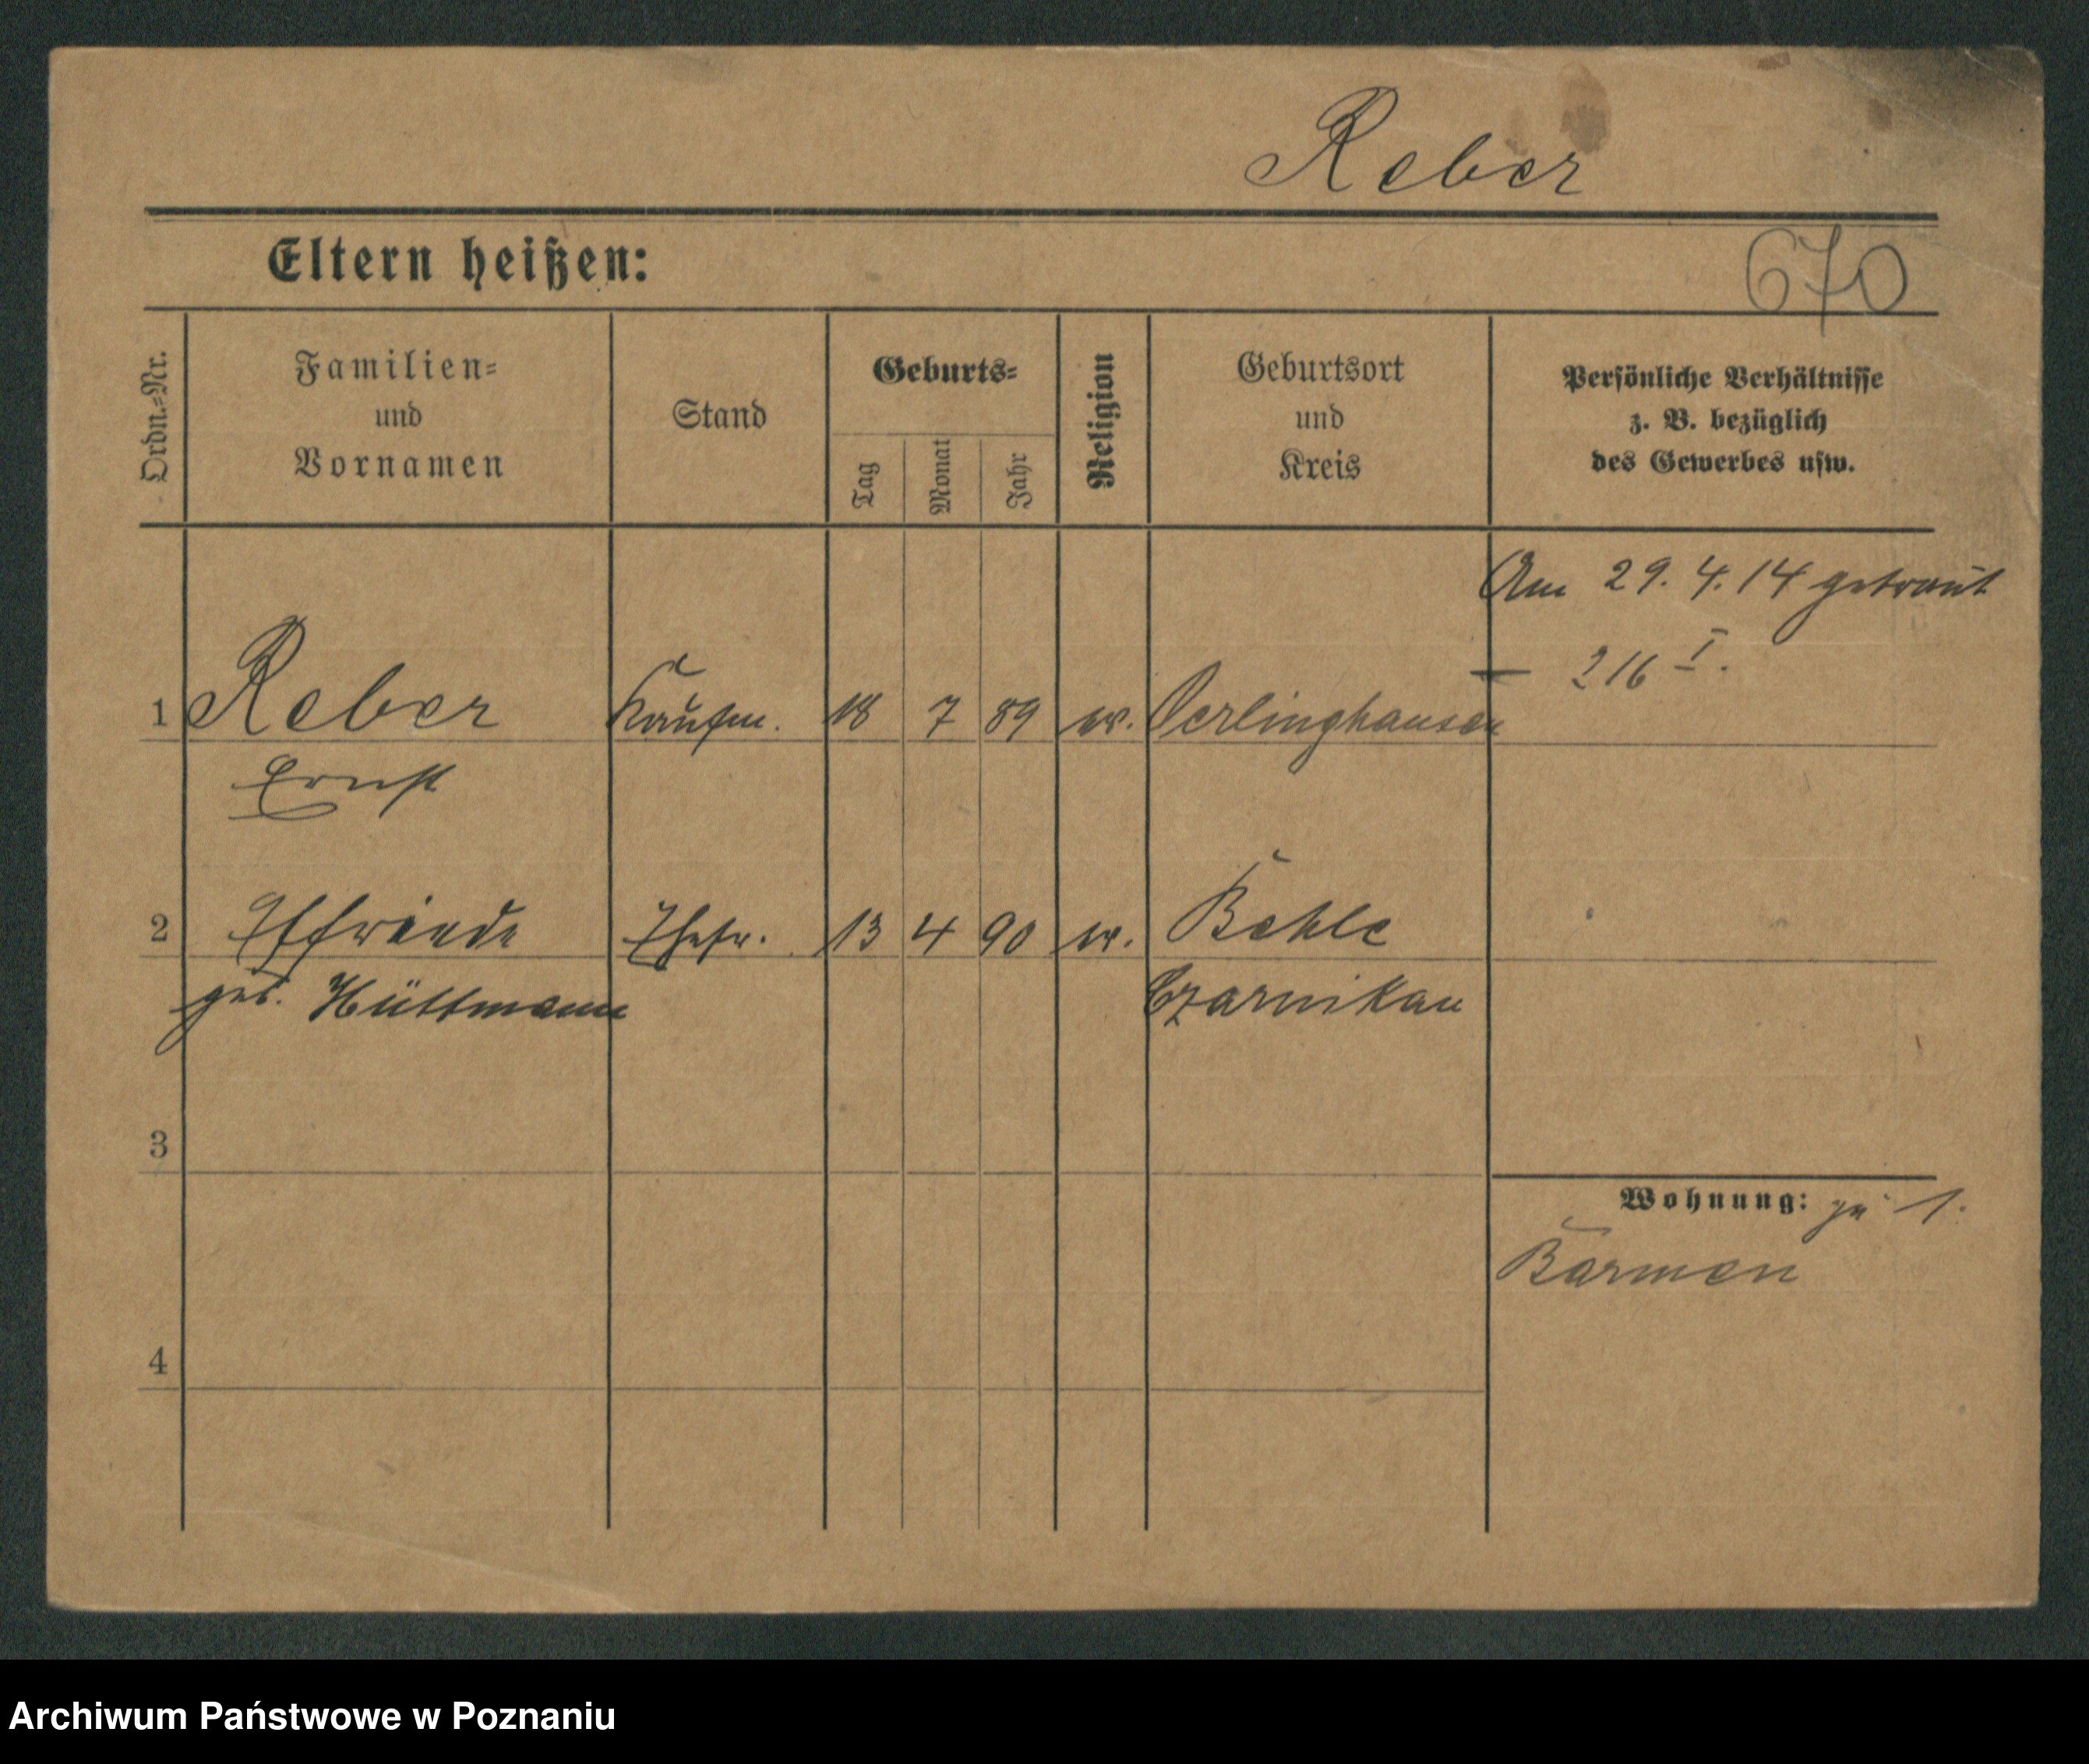 Reber
Eltern heißen:
670
Ordn.-Nr.
Familien-
und
Vornamen
Stand
Geburts-
Tag
Monat
Jahr
Religion
Geburtsort
und
Kreis
Persönliche Verhältnisse
z. B. bezüglich
des Gewerbes usw.
Am 29. 4. 14 getraut
— 216 I.
1 Reber Kaufm. 18 7 89 ev. Oerlinghausen
Ernst
2 Ehefr. 13 4 90 ev. Behle
geb. Hüttmann Czarnikau
3
Wohnung: zu 1.
Barmen
4
Archiwum Państwowe w Poznaniu